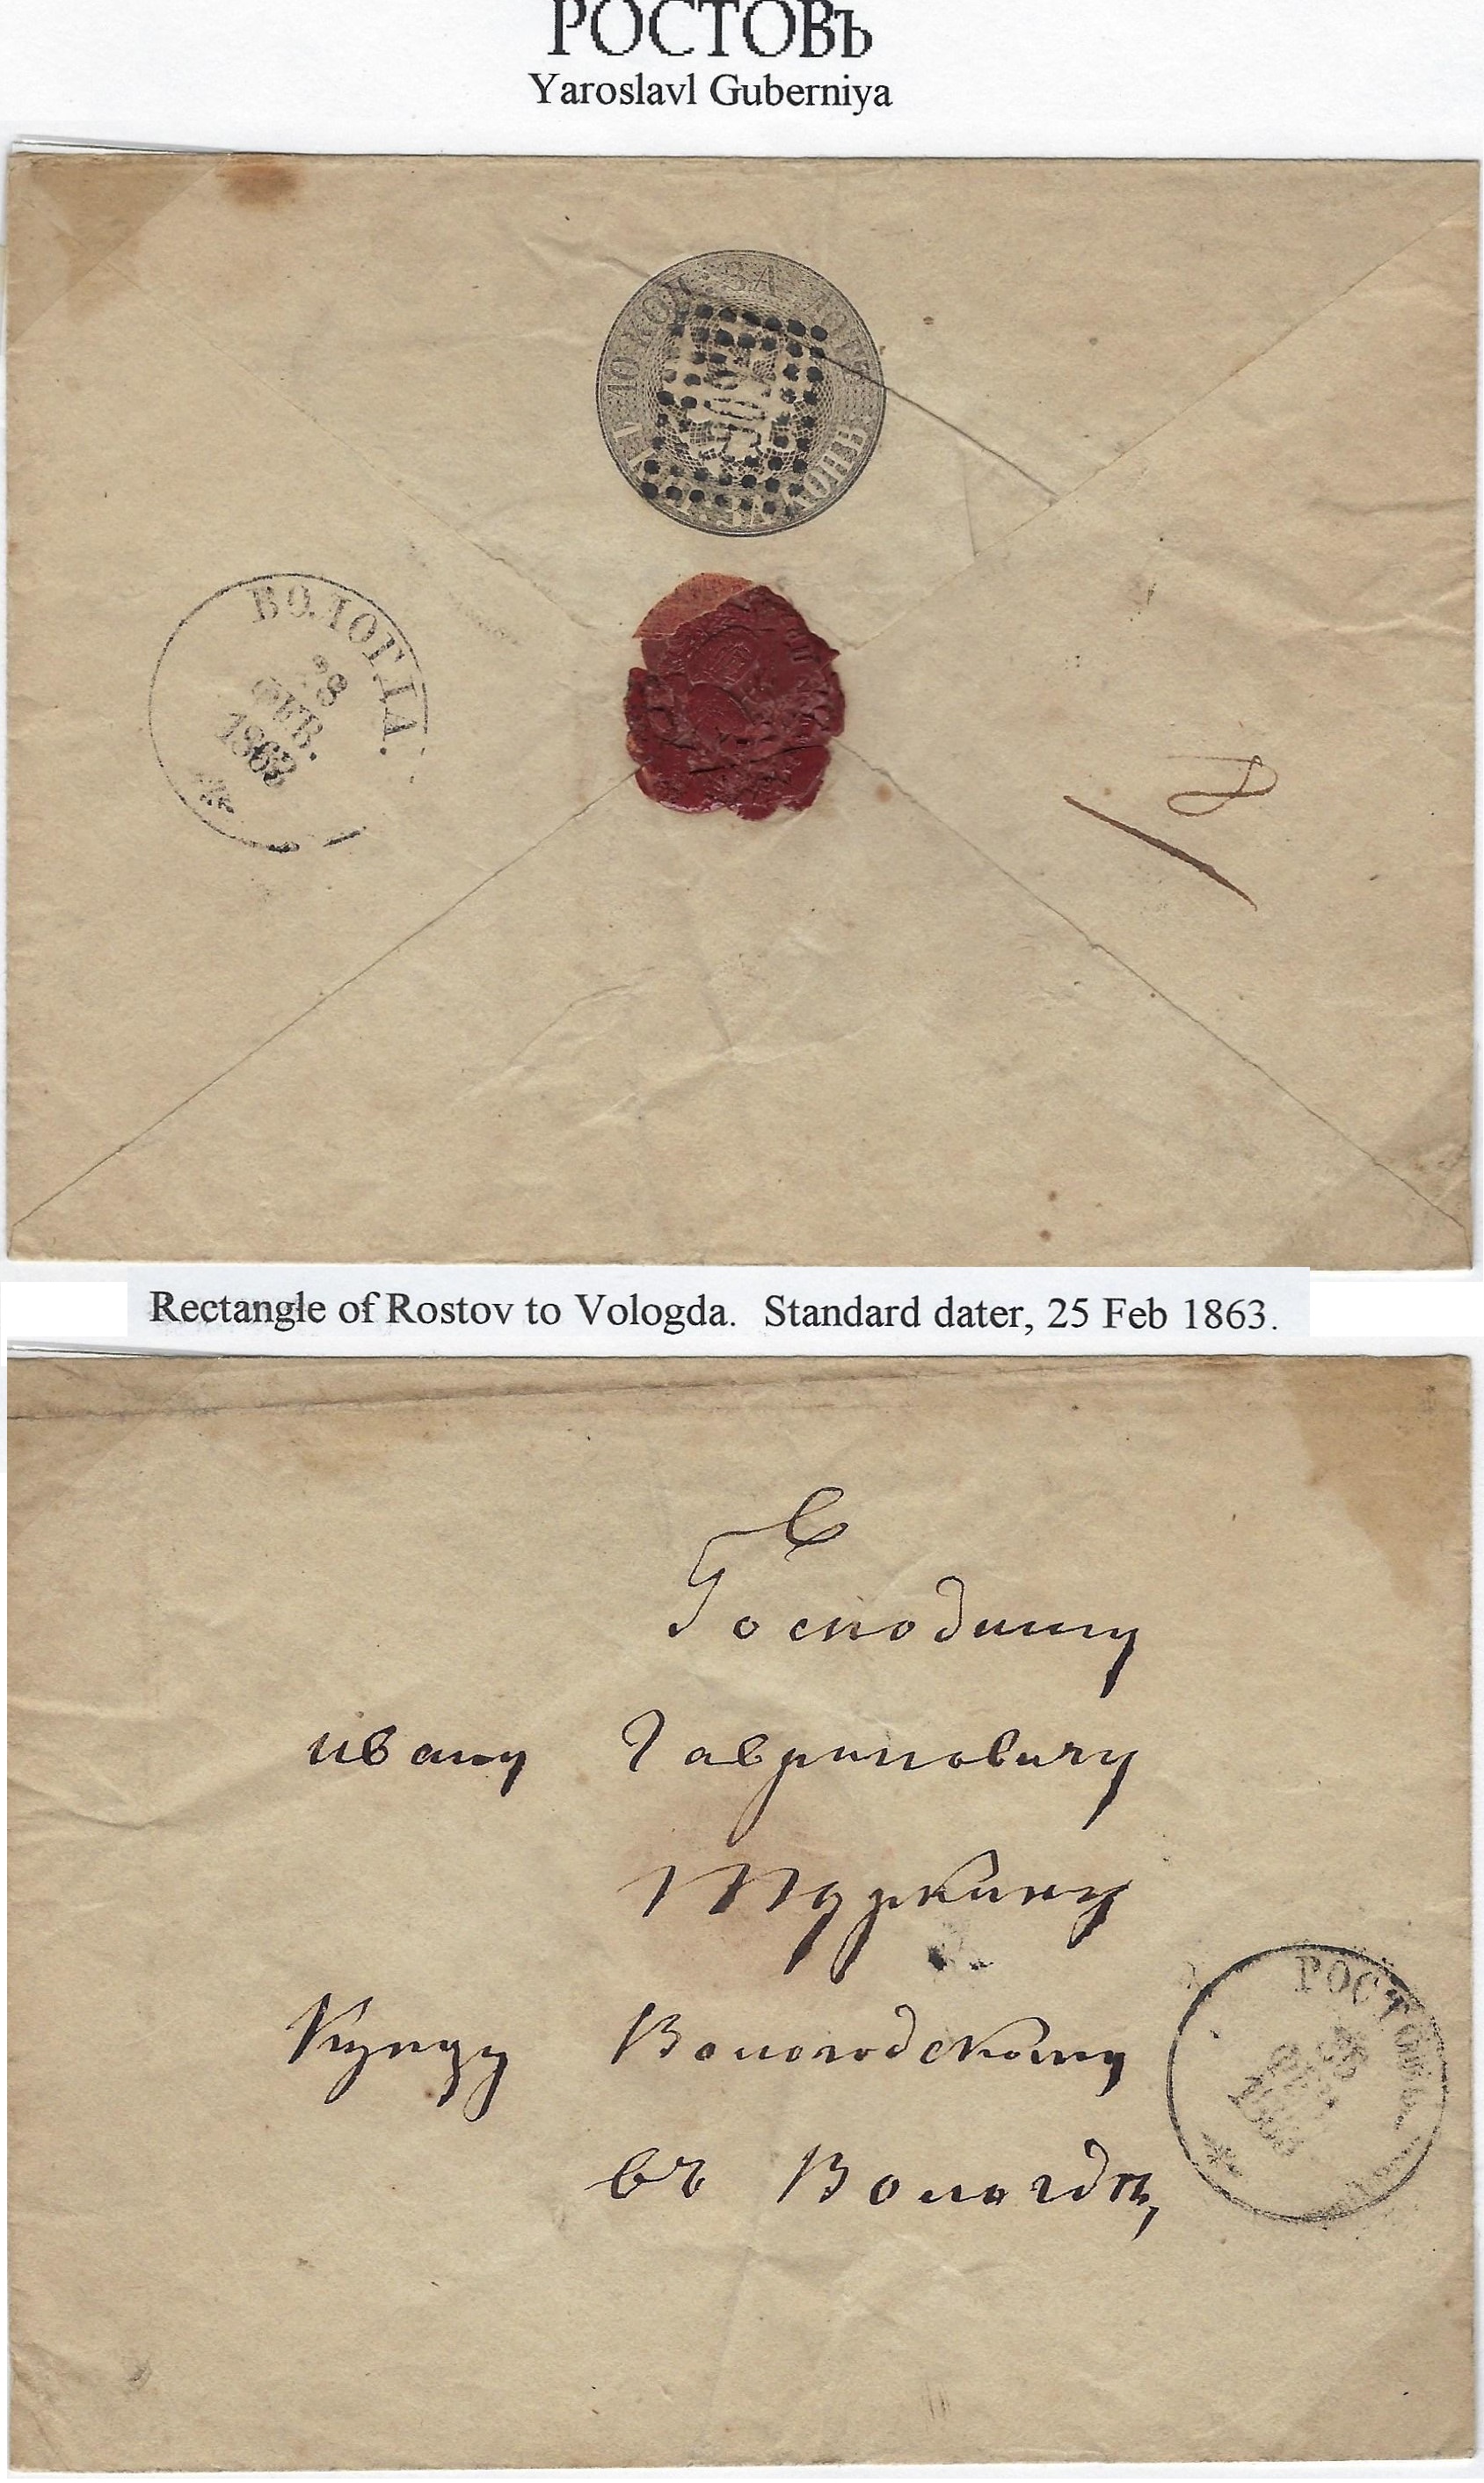 РОСТОВЪ
Yaroslavl Guberniya
10 КОП. ЗА ЛОТЪ
1 К. ЗА КОНВ.
ВОЛОГДА.
28
ФЕВ.
1863
1
Rectangle of Rostov to Vologda. Standard dater, 25 Feb 1863.
Господину
ивану Гавриловичу
Туркину
Купцу Вологодскому
въ Вологдѣ,
РОСТОВЪ
ФЕВ.
1863